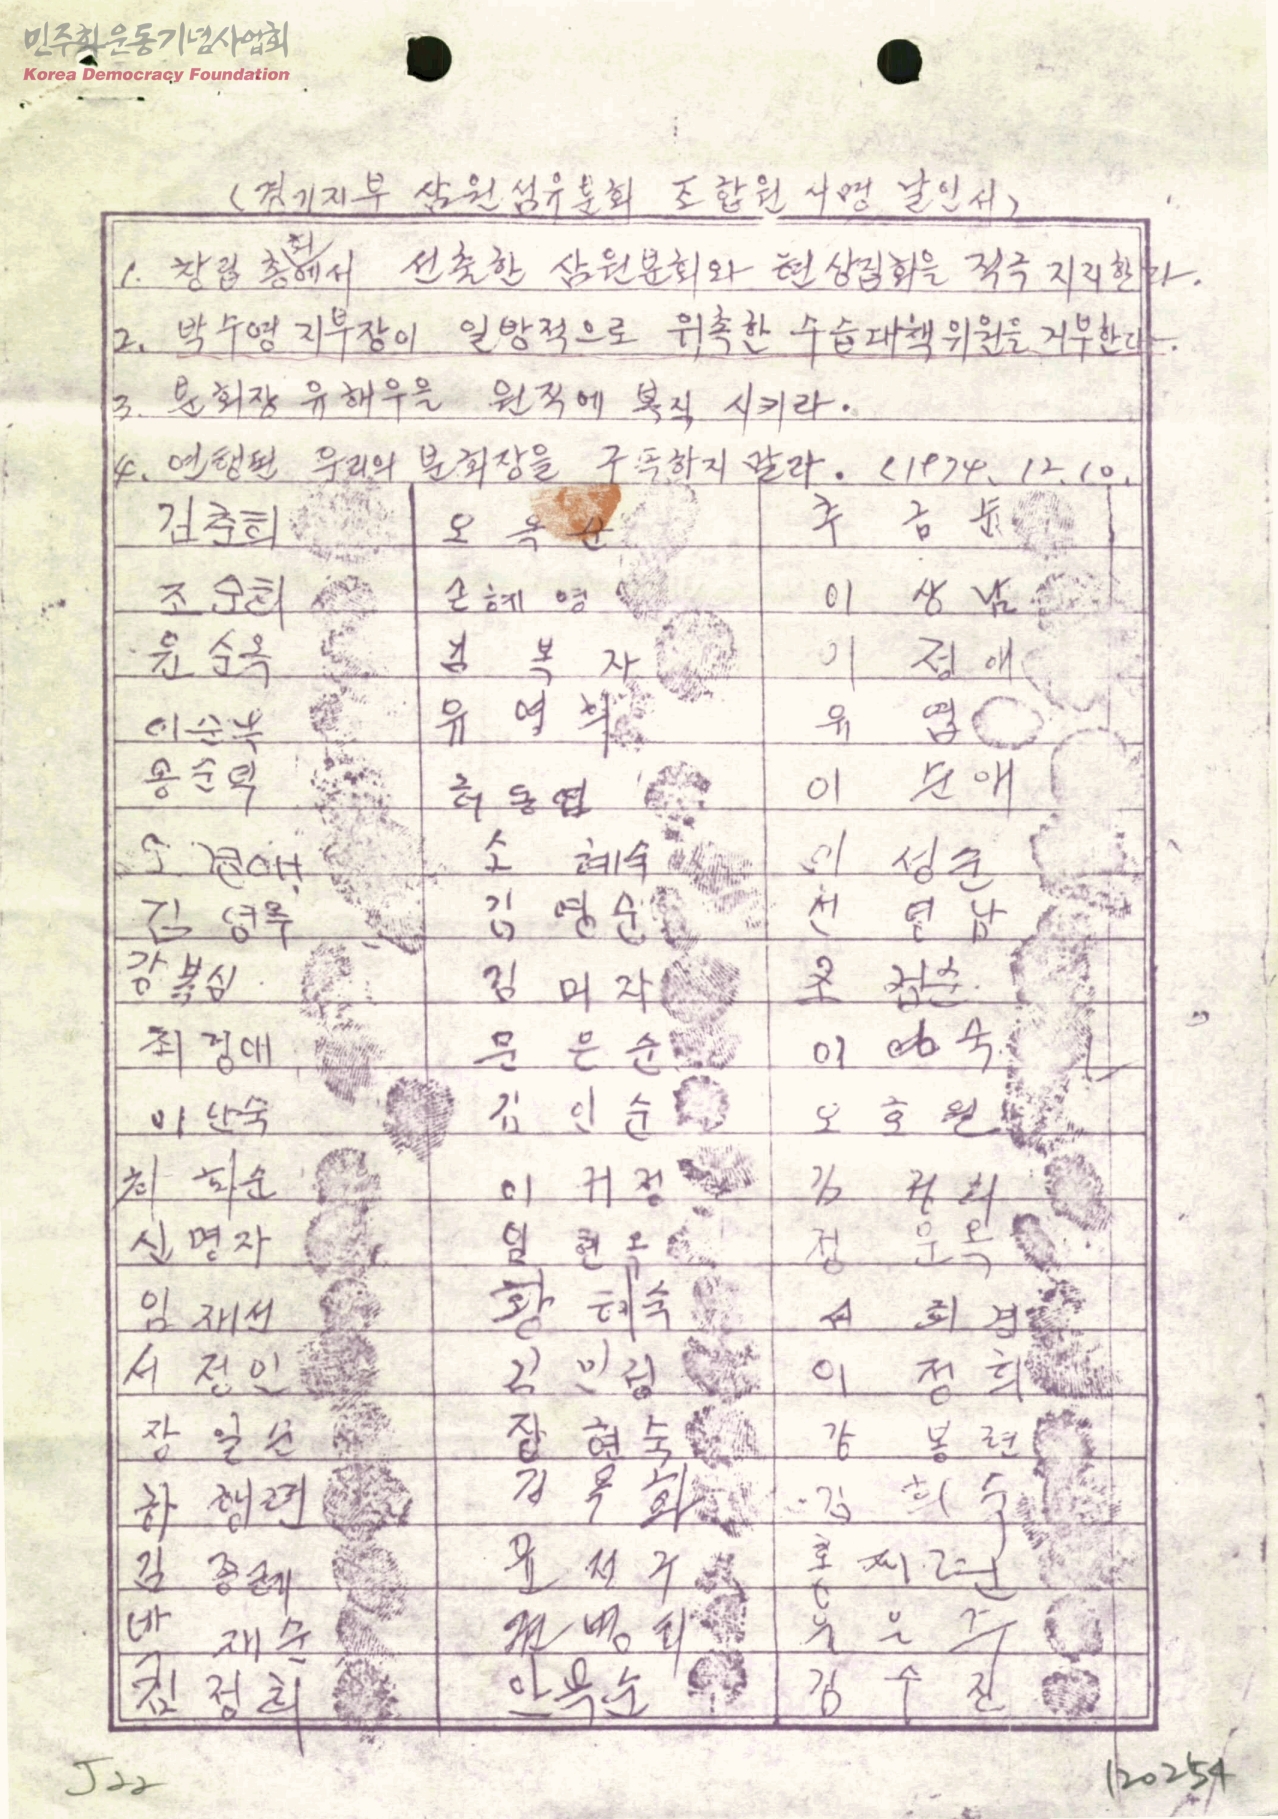 민주화운동기념사업회
Korea Democracy Foundation
(경기지부 삼원섬유분회 조합원 서명 날인서)
1. 창립 총회에서 선출한 삼원분회와 현 상집회을 적극 지지한다.
2. 박수영 지부장이 일방적으로 위촉한 수습대책위원을 거부한다.
3. 분회장 유해우을 원직에 복직 시키라.
4. 연행된 우리의 분회장을 구속하지 말라. (1974. 12. 10.
김춘희 오옥순 추금분
조순희 손혜영 이상남
윤순옥 김복자 이정애
이순복 유영희 유엽
용순덕 허동엽 이순애
소혜숙 이성순
김영옥 김영순 선연남
강복심 김미자 조점순
최경애 문은순 이영숙
이난숙 김인순 오호원
최화순 이귀정 김정희
신명자 임현옥 정운옥
임재선 황혜숙 서희겸
서정인 김민림 이정희
장일순 장현숙 강봉련
하행련 김옥화 김희숙
김종순 윤석구
박재순 전병희 우은주
김정희 안옥순 김수진
J22
120254